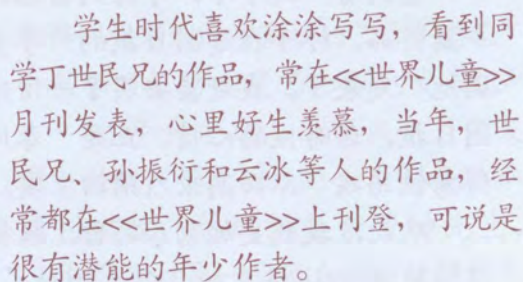 学生时代喜欢涂涂写写，看到同
学丁世民兄的作品，常在<<世界儿童>>
月刊发表，心里好生羡慕，当年，世
民兄、孙振衍和云冰等人的作品，经
常都在<<世界儿童>>上刊登，可说是
很有潜能的年少作者。